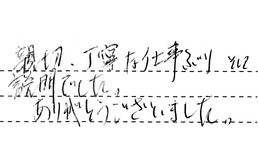 親切、丁寧な仕事ぶり そして
説明でした。
ありがとうございました。